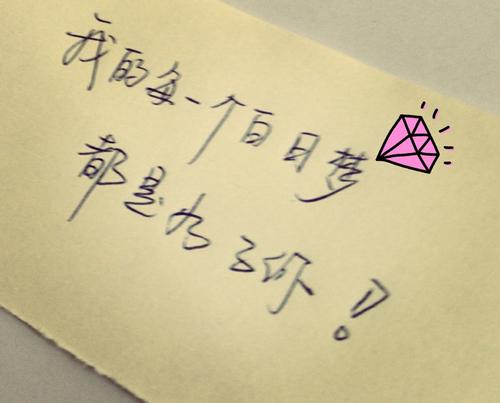 我的每一个百日梦
都是为了你！